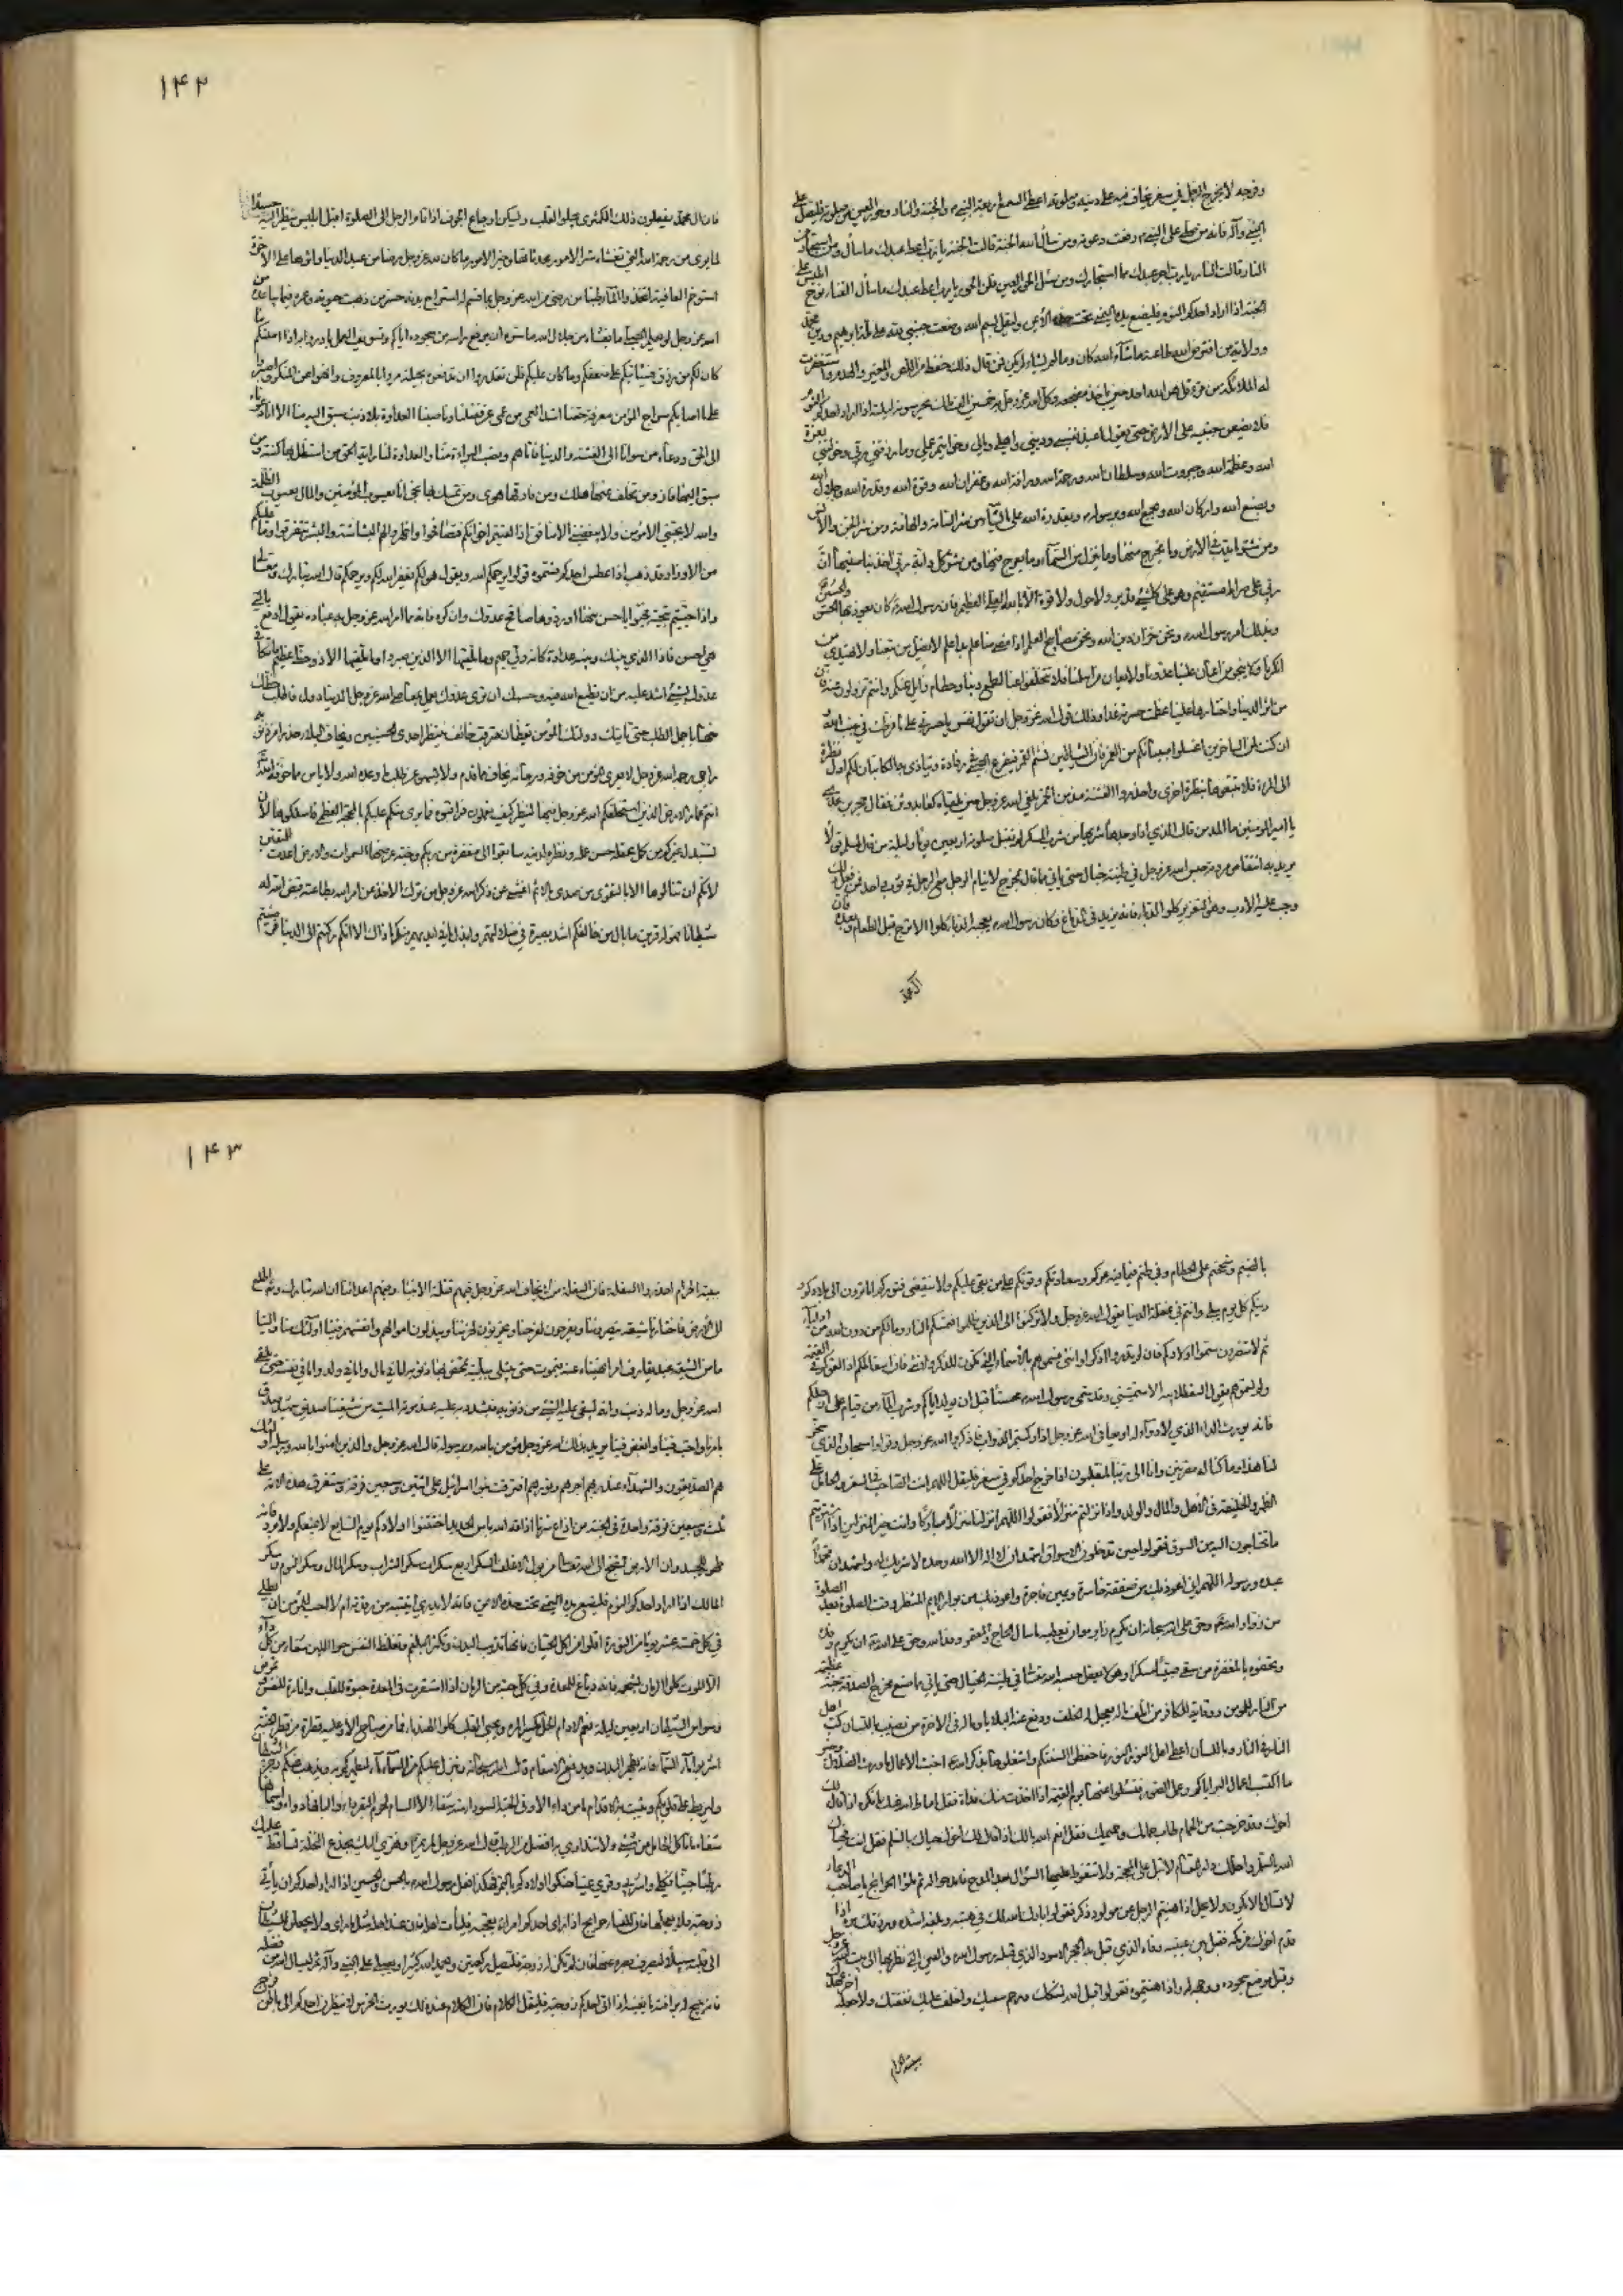 وفرجه لا يخرج الرجل في سفر يخاف فيه على دينه وصلوته اعطى السمع اربعة النبي ص والجنة والنار وحور العين فليصل على
النبي وآله فانه من صلى على النبي ص رفعت دعوته ومن سأل الله الجنة قالت الجنة يا رب اعط عبدك ما سأل ومن استجار من
النار قالت النار يا رب اجر عبدك مما استجارك ومن سئل الحور العين قلن الحور يا رب اعط عبدك ما سأل الغناء نوح ابليس على
الجنة اذا اراد احدكم النوم فليضع يده اليمنى تحت خده الأيمن وليقل بسم الله وضعت جنبي لله على ملة ابرهيم ودين محمد
وولاية من افترض الله طاعته ما شآء الله كان وما لم يشاء لم يكن فمن قال ذلك حفظ من اللص والمغير والهدم واستغفرت
له الملائكة من قرء قل هو الله احد حين يأخذ مضجعه وكل الله عز وجل به خمسين الف ملك يحرسونه ليلته اذا اراد احدكم النوم
فلا يضعن جنبه على الارض حتى يقول اعيذ نفسي وديني واهلي ومالي وخواتيم عملي وما رزقني ربي وخولني بعزة
الله وعظمة الله وجبروت الله وسلطان الله ورحمة الله ورافة الله وغفران الله وقوة الله وقدرة الله وجلال الله
وبصنع الله واركان الله وبجمع الله وبرسول الله وبقدرة الله على ما يشآء من شر السامة والهامة ومن شر الجن والانس
ومن شر ما يدب في الارض وما يخرج منها وما ينزل من السمآء وما يعرج فيها ومن شر كل دابة ربي اخذ بناصيتها ان
ربي على صراط مستقيم وهو على كل شيء قدير ولا حول ولا قوة الا بالله العلي العظيم فان رسول الله ص كان يعوذ بها الحسن والحسين
وبذلك امر رسول الله ص ونحن خزان دين الله ونحن مصابيح العلم اذا مضى منا علم بدا علم لا يضل من تبعنا ولا يهتدي من
انكرنا ولا ينجو من اعان علينا عدونا ولا يعان من اسلمنا فلا تخلفوا عنا لطمع دنيا وحطام زايل عنكم وانتم تزولون عنه فان
من آثر الدنيا واختارها علينا عظمت حسرته غدا وذلك قول الله عز وجل ان تقول نفس يا حسرتى على ما فرطت في جنب الله وان
كنت لمن الساخرين اغسلوا صبيانكم من الغمر فان الشياطين تشم الغمر فيفزع الصبي في رقاده ويتأذى به الكاتبان لكم اول نظرة
الى المراة فلا تتبعوها بنظرة اخرى واحذروا الفتنة مدمن الخمر يلقى الله عز وجل حين يلقاه كعابد وثن فقال حجر بن عدي
يا امير المؤمنين ما المدمن قال الذي اذا وجدها شربها من شرب المسكر لم تقبل صلوته اربعين يوما وليلة من قال لمسلم قولا
يريد به انتقاص مروته حبس الله عز وجل في طينة خبال حتى يأتي مما قال بمخرج لا ينام الرجل مع الرجل في ثوب واحد فمن فعل ذلك
وجب عليه الادب وهو التعزير كلوا الدبا فانه يزيد في الدماغ وكان رسول الله ص يعجبه الدبا كلوا الاترج قبل الطعام وبعده فان
آل محمد
١۴٢
فان آل محمد يفعلون ذلك الكمثرى يجلو القلب ويسكن اوجاع الجوف اذا قام الرجل الى الصلوة اقبل ابليس ينظر اليه حسدا
لما يرى من رحمة الله التي تغشاه شر الامور محدثاتها وخير الامور ما كان لله عز وجل رضا من عبد الدنيا واثرها على الاخرة
استوخم العاقبة اتخذوا المآء طيبا من رضي من الله عز وجل بما قسم له استراح بدنه خسر من ذهبت حيوته وعمره فيما يباعده من
الله عز وجل لو يعلم المصلي ما يغشاه من جلال الله ما سره ان يرفع راسه من سجوده اياكم وتسويف العمل بادروا به اذا امكنكم ما
كان لكم من رزق فسيأتيكم على ضعفكم وما كان عليكم فلن تقدروا ان تدفعوه بحيلة مروا بالمعروف وانهوا عن المنكر واصبروا
على ما اصابكم سراج المؤمن معرفة حقنا اشد العمى من عمى عن فضلنا وناصبنا العداوة بلا ذنب سبق اليه منا الا انا دعوناه
الى الحق ودعاه من سوانا الى الفتنة والدنيا فاتاهم ونصب البراءة منا والعداوة لنا راية الحق من استظل بها كنته ومن
سبق اليها فاز ومن تخلف عنها هلك ومن فارقها هوى ومن تمسك بها نجا انا يعسوب المؤمنين والمال يعسوب الظلمة
والله لا يحبني الا مؤمن ولا يبغضني الا منافق اذا لقيتم اخوانكم فتصافحوا واظهروا لهم البشاشة والبشر تتفرقوا وما عليكم
من الاوزار قد ذهب اذا عطس احدكم فسمتوه قولوا يرحمكم الله ويقول هو لكم يغفر الله لكم ويرحمكم قال الله تبارك وتعالى
واذا حييتم بتحية فحيوا باحسن منها او ردوها صافح عدوك وان كره فانه مما امر الله عز وجل به عباده يقول ادفع بالتي
هي احسن فاذا الذي بينك وبينه عداوة كانه ولي حميم وما يلقيها الا الذين صبروا وما يلقيها الا ذو حظ عظيم ما تكافي
عدوك بشيء اشد عليه من ان تطيع الله فيه وحسبك ان ترى عدوك يعمل بمعاصي الله عز وجل الدنيا دول فاطلب حظك
منها باجمل الطلب حتى تاتيك دولتك المؤمن يقظان مترقب خائف ينتظر احدى الحسنيين ويخاف البلاء حذرا من ذنوبه
راجي رحمة الله عز وجل لا يعرى المؤمن من خوفه ورجآئه يخاف مما قدم ولا يسهو عن طلب ما وعده الله ولا يامن مما خوفه الله
انتم عمار الارض الذين استخلفكم الله عز وجل فيها لينظر كيف تعملون فراقبوه فيما يرى منكم عليكم بالمحجة العظمى فاسلكوها لا
يستبدل بكم غيركم من كمل عقله حسن عمله ونظره لدينه سابقوا الى مغفرة من ربكم وجنة عرضها السموات والارض اعدت للمتقين
لانكم لن تنالوها الا بالتقوى من صدى بالاثم اعشى عن ذكر الله عز وجل من ترك الاخذ عن امر الله بطاعته قيض الله له
شيطانا فهو له قرين ما بال من خالفكم اشد بصيرة في ضلالتهم وابذل لما في ايديهم منكم ما ذاك الا انكم ركنتم الى الدنيا فرضيتم
بالضيم وشححتم على الحطام وفرطتم فيما فيه عزكم وسعادتكم وقوتكم على من بغى عليكم ولا من ربكم
وبكم كل يوم وانتم في غفلة الدنيا يقول الله عز وجل ولا تركنوا الى الذين ظلموا فتمسكم النار وما لكم من دون الله من اولياء
ثم لا تنصرون سموا اولادكم فان لم تدروا اذكر او انثى فسموهم بالاسماء التي تكون للذكر والانثى فان اسقاطكم اذا لقوكم في القيمة
ولم تسموهم يقول السقط لابيه الا سميتني وقد سمى رسول الله ص محسنا قبل ان يولد اياكم وشرب المآء من قيام على ارجلكم
فانه يورث الداء الذي لا دوآء له او يعافي الله عز وجل اذا ركبتم الدواب فاذكروا الله عز وجل وقولوا سبحان الذي سخر
لنا هذا وما كنا له مقرنين وانا الى ربنا لمنقلبون اذا خرج احدكم في سفر فليقل اللهم انت الصاحب في السفر والحامل على
الظهر والخليفة في الاهل والمال والولد واذا نزلتم منزلا فقولوا اللهم انزلنا منزلا مباركا وانت خير المنزلين اذا اشتريتم
ما تحتاجون اليه من السوق فقولوا حين تدخلون الاسواق اشهد ان لا اله الا الله وحده لا شريك له واشهد ان محمدا
عبده ورسوله اللهم اني اعوذ بك من صفقة خاسرة ويمين فاجرة واعوذ بك من بوار الايم المنتظر وقت الصلوة بعد الصلوة
من زوار الله عز وحق على الله سبحانه ان يكرم زايره وان يعطيه ما سأل الحاج والمعتمر وفد الله وحق على الله ان يكرم وفده
ويحفوه بالمغفرة من سقى صبيا مسكرا وهو لا يعقل حبسه الله تعالى في طينة الخبال حتى يأتي مما صنع بمخرج الصدقة جنة عظيمة
من النار للمؤمن ووقاية للكافر من اتلف ماله يعجل له الخلف ودفع عنه البلايا وماله في الاخرة من نصيب باللسان كب اهل
النار في النار وباللسان اعطي اهل النور النور فاحفظوا السنتكم واشغلوها بذكر الله عز اخبث الاعمال ما ورث الضلال وخير
ما اكتسب اعمال البر اياكم وعمل الصور فتسئلوا عنها يوم القيمة اذا اخذت منك قذاة فقل اماط الله عنك ما تكره اذا قال لك
اخوك وقد خرجت من الحمام طاب حمامك وحميمك فقل انعم الله بالك اذا قال لك اخوك حياك الله بالسلم فقل انت فحياك
الله بالسلم واحلك دار المقام لا تبل على المحجة ولا تتغوط عليها السؤال بعد المدح فامدحوا الله ثم سلوا الحوائج يا صاحب الدعاء
لا تسأل ما لا يكون ولا يحل اذا هنيتم الرجل عن مولود ذكر فقولوا بارك الله لك في هبته وبلغه اشده ورزقك بره اذا
قدم اخوك من مكه فقبل بين عينيه وفاه الذي قبل به الحجر الاسود الذي قبله رسول الله ص والعين التي نظر بها الى بيت الله عز وجل
وقبل موضع سجوده ووجهه واذا هنيتموه فقولوا قبل الله نسكك ورحم سعيك واخلف عليك نفقتك ولا جعله آخر عهدك
ببيته الحرام
١۴٣
ببيته الحرام احذروا السفلة فان السفلة من لا يخاف الله عز وجل فيهم قتلة الانبياء وفيهم اعدائنا ان الله تبارك وتعالى اطلع
الى الارض فاختارنا شيعة ينصروننا ويفرحون لفرحنا ويحزنون لحزننا ويبذلون اموالهم وانفسهم فينا اولئك منا والينا
ما من الشيعة عبد يقارف امرا نهيناه عنه فيموت حتى يبتلى ببلية تمحص بها ذنوبه اما في مال واما في ولد واما في نفسه حتى يلقى
الله عز وجل وما له ذنب وانه ليبقى عليه الشيء من ذنوبه فيشدد به عليه عند موته الميت من شيعتنا صديق شهيد صدق
بامرنا واحب فينا وابغض فينا يريد بذلك الله عز وجل مؤمن بالله وبرسوله قال الله عز وجل والذين امنوا بالله ورسله اولئك
هم الصديقون والشهدآء عند ربهم لهم اجرهم ونورهم افترقت بنو اسرائيل على اثنتين وسبعين فرقة وستفترق هذه الامة على
ثلث وسبعين فرقة واحدة في الجنة من اذاع سرنا اذاقه الله باس الحديد اختتنوا اولادكم يوم السابع لا يمنعكم حر ولا برد فانه
طهر للجسد وان الارض لتضج الى الله تعالى من بول الاغلف السكر اربع سكرات سكر الشراب وسكر المال وسكر النوم وسكر
الملك اذا اراد احدكم النوم فليضع يده اليمنى تحت خده الايمن فانه لا يدري اينتبه من رقدته ام لا احب للمؤمن ان يطلي
في كل خمسة عشر يوما من النورة اقلوا من اكل الحيتان فانها تذيب البدن وتكثر البلغم وتغلظ النفس حسو اللبن شفاء من كل داء
الا الموت كلوا الرمان بشحمه فانه دباغ للمعدة وفي كل حبة من الرمان اذا استقرت في المعدة حيوة للقلب وانارة للنفس وتمرض
وسواس الشيطان اربعين ليلة نعم الادام الخل يكسر المرة ويحيي القلب كلوا الهندباء فما من صباح الا وعليه قطرة من قطر الجنة
اشربوا مآء السمآء فانه يطهر البدن ويدفع الاسقام قال الله سبحانه وينزل عليكم من السمآء مآء ليطهركم به ويذهب عنكم رجز الشيطان
وليربط على قلوبكم ويثبت به الاقدام ما من داء الا وفي الحبة السوداء منه شفاء الا السام لحوم البقر داء والبانها دواء واسمانها
شفاء ما تاكل الحامل من شيء ولا تتداوى به افضل من الرطب قال الله عز وجل لمريم وهزي اليك بجذع النخلة تساقط عليك
رطبا جنيا فكلي واشربي وقري عينا حنكوا اولادكم بالتمر فهكذا فعل رسول الله ص بالحسن والحسين اذا اراد احدكم ان يأتي
زوجته فلا يعجلها فان للنساء حوايج اذا راى احدكم امراة تعجبه فليأت اهله فان عند اهله مثل ما راى ولا يجعلن للشيطان
الى قلبه سبيلا ليصرف بصره عنها فان لم تكن له زوجة فليصل ركعتين ويحمد الله كثيرا ويصلي على النبي وآله ثم ليسأل الله من فضله
فانه يبيح له برافته ما يغنيه اذا اتى احدكم زوجته فليقل الكلام فان الكلام عند ذلك يورث الخرس لا ينظرن احدكم الى باطن فرج